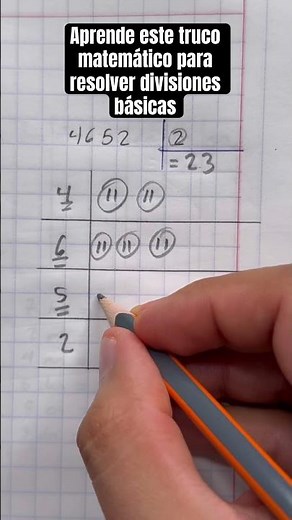 Aprende este truco
matemático para
resolver divisiones
básicas
4652 2
= 23
4 11 11
6 11 11 11
5
2